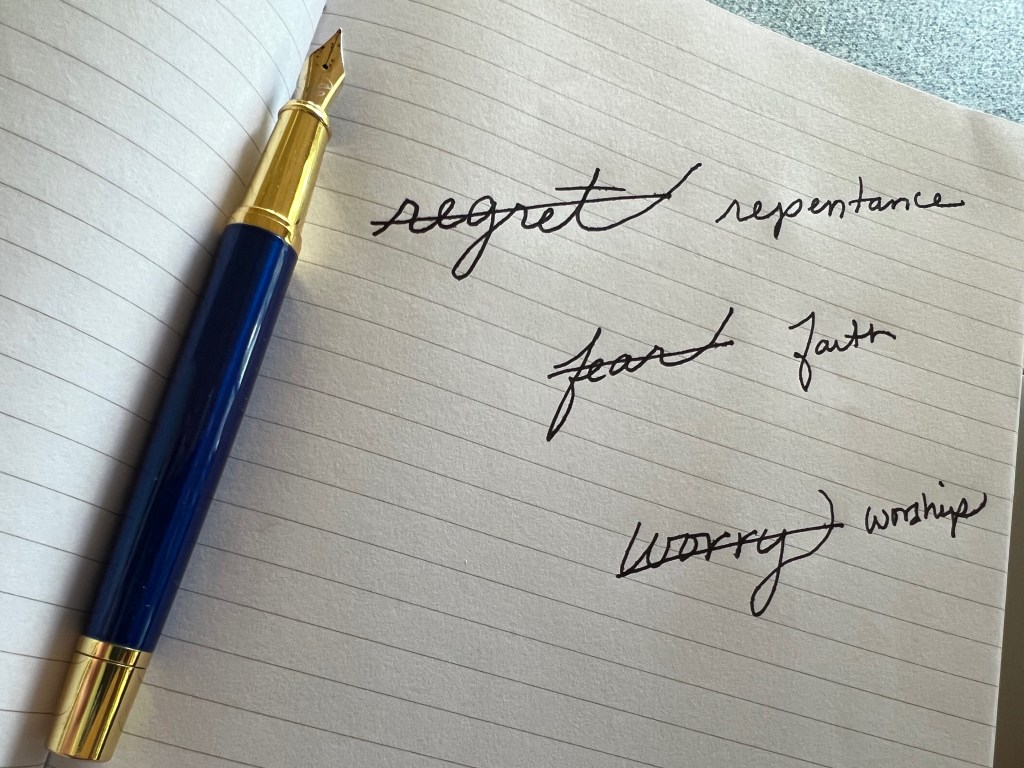 regret repentance
fear faith
worry worship